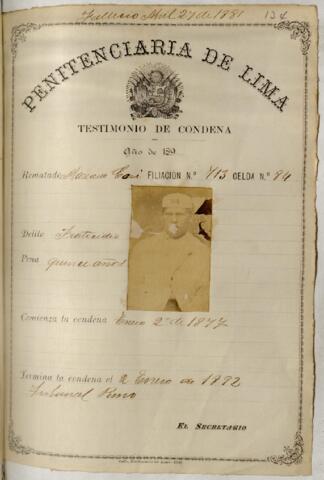 Falleció Abril 27 de 1881
134
PENITENCIARIA DE LIMA
TESTIMONIO DE CONDENA
Año de 189
Rematado Mariano FILIACIÓN N.º 413 CELDA N.º 94
Delito
Pena quince años
Comienza la condena Enero 2 de 1877
Termina la condena el 2 Enero de 1892
Tribunal Puno
EL SECRETARIO